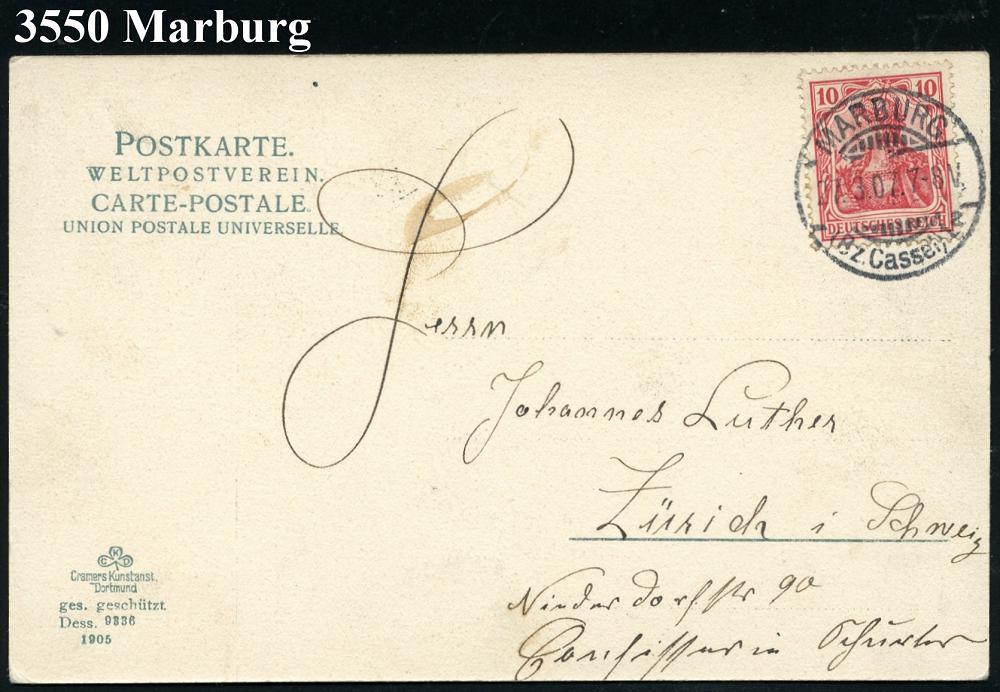 3550 Marburg
POSTKARTE.
WELTPOSTVEREIN.
CARTE-POSTALE.
UNION POSTALE UNIVERSELLE.
10 10
DEUTSCHES REICH
MARBURG
3.07.7-8V.
(Bz. Cassel)
Herrn
Johannes Luther
Zürich i Schweiz
Niederdorfstr 90
Confisserie
C K D
Cramers Kunstanst.
Dortmund
ges. geschützt.
Dess. 9336
1905